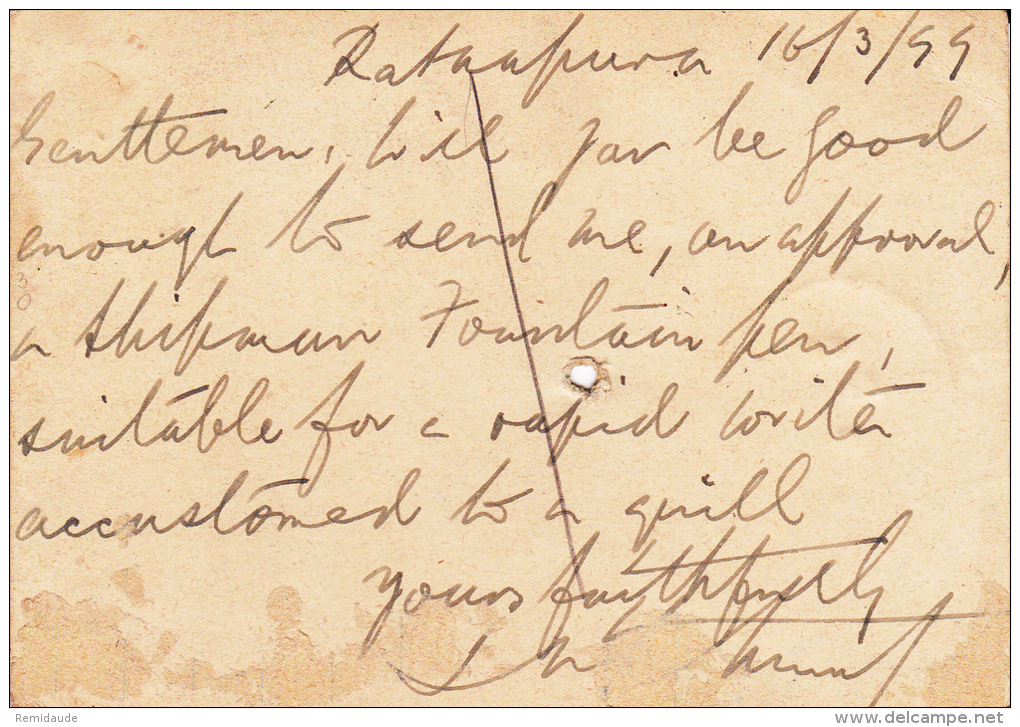 Ratnapura 16/3/99
Gentlemen, Will you be good
enough to send me, on approval,
a Shipman Fountain pen,
suitable for a rapid writer
accustomed to a quill
yours faithfully
Remidaude
www.delcampe.net